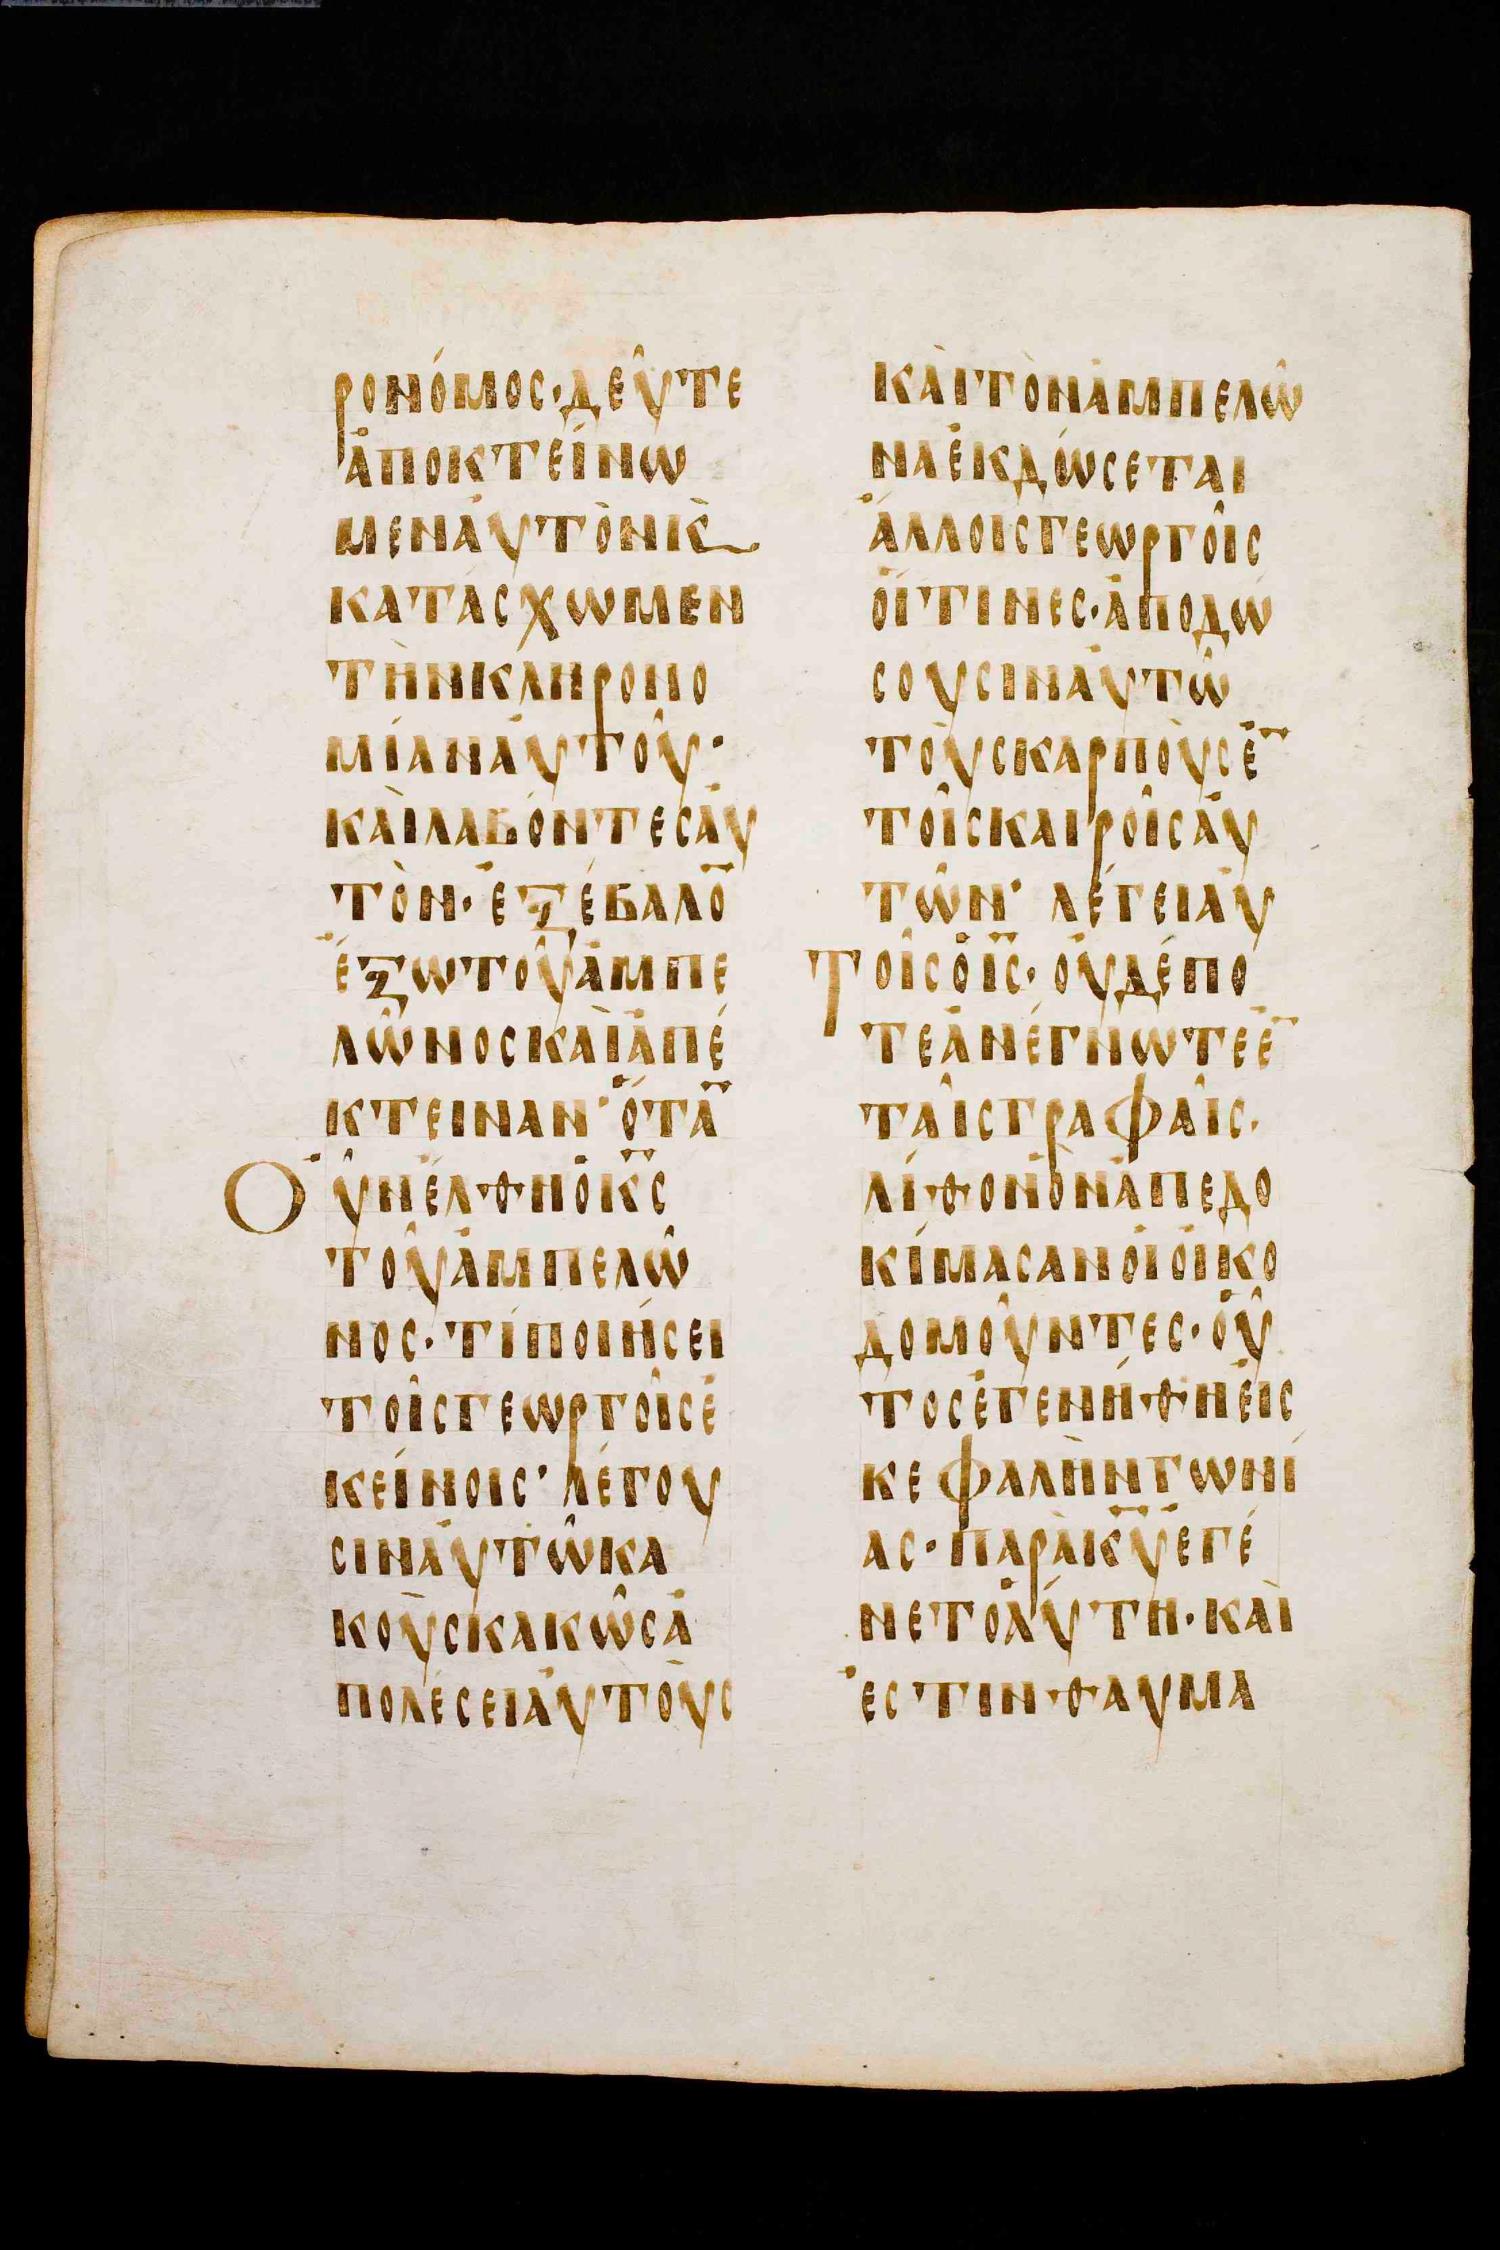 ρονόμος· δεῦτε
ἀποκτείνω
μεν ἀυτὸν κ̀
κατάσχωμεν
τὴν κληρονο
μίαν ἀυτοῦ·
κὰι λαβόντες ἀυ
τὸν· ἐξέβαλο̄
ἔξω τοῦ ἀμπε
λῶνος κὰι ἀπέ
κτειναν· ὅτᾱ
Οὖν ἔλθη ὁ κ̅ς
τοῦ ἀμπελῶ
νος· τί ποιήσει
τοῖς γεωργοῖς ἐ
κείνοις· λέγου
σιν ἀυτῶ κα
κοὺς κακῶς ἀ
πολέσει ἀυτοὺς
κὰι τὸν ἀμπελῶ
να ἐκδώσεται
ἄλλοις γεωργοῖς
ὅιτινες· ἀποδώ
σουσιν ἀυτῶ
τοὺς καρποὺς ἐ̄
τοῖς καιροῖς ἀυ
τῶν· λέγει ἀυ
Τοῖς ὁ ι̅ς· ὀυδέπο
τε ἀνέγνωτε ἐ̄
ταῖς γραφαῖς·
λίθον ὃν ἀπεδο
κίμασαν ὁι ὀικο
δομοῦντες· οὗ
τος ἐγενήθη ἐις
κεφαλὴν γωνί
ας· παρὰ κ̅υ ἐγέ
νετο ἁύτη· κὰι
ἐστιν θαυμα